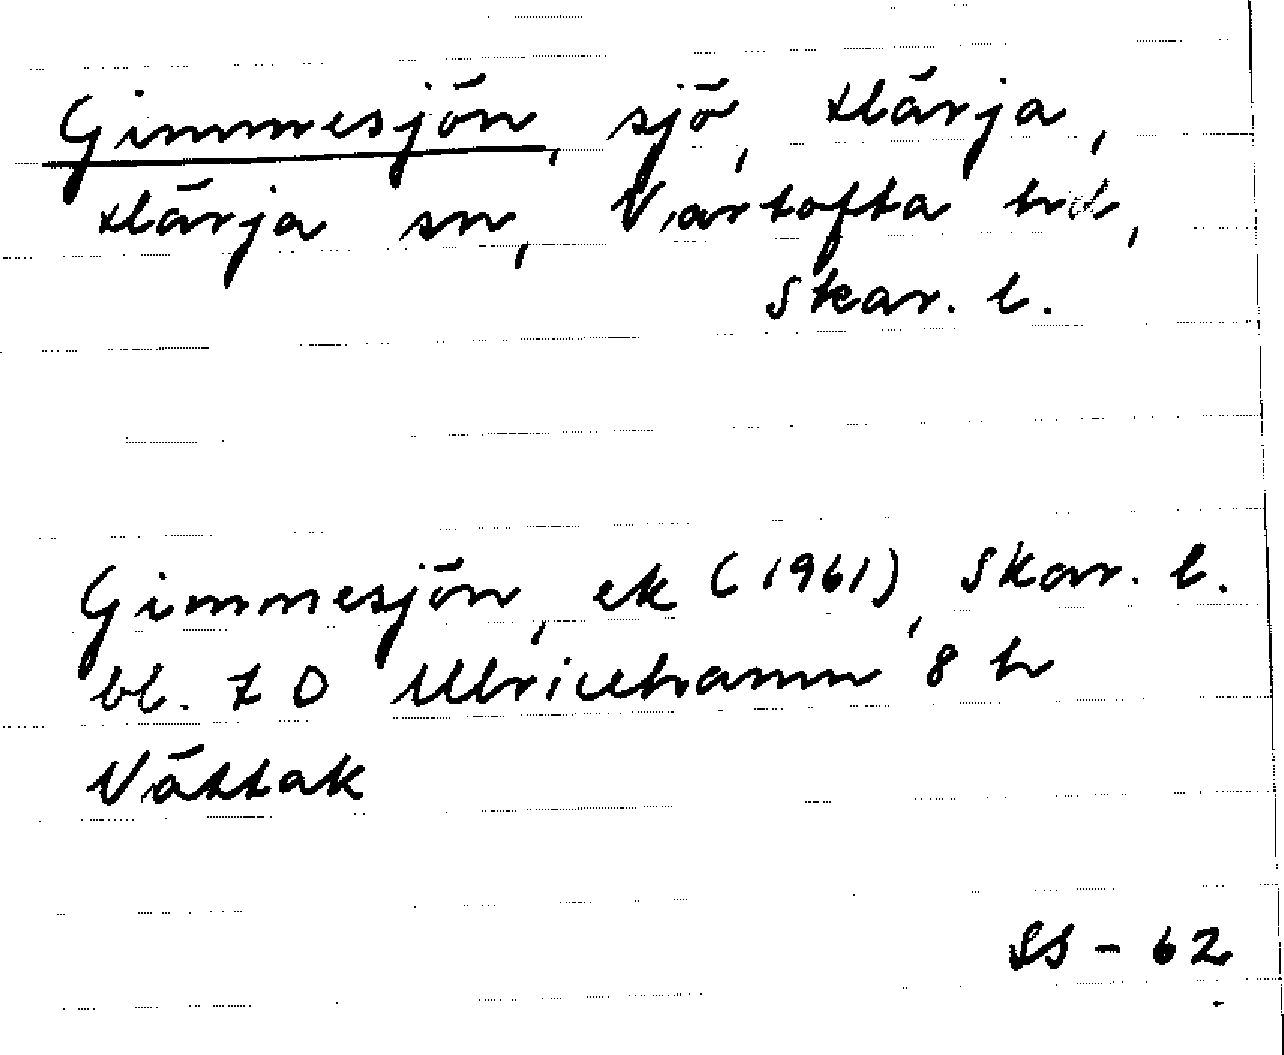 Gimmesjön, sjö, Härja,
Härja sn, Vartofta hd,
Skar. l.
Gimmesjön, ek (1961), Skar. l.
bl. 7 D Ulricehamn 8 h
Vättak
SS - 62